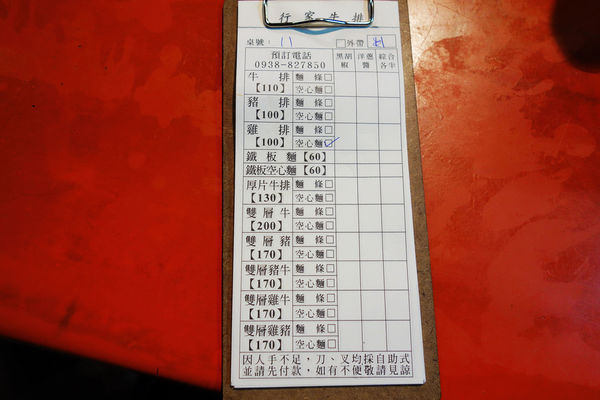 行家牛排
桌號： 11 □外帶
預訂電話
0938-827850
黑胡椒 洋蔥醬 綜合各半
牛排【110】 麵條□
空心麵□
豬排【100】 麵條□
空心麵□
雞排【100】 麵條□
空心麵☑
鐵板麵【60】
鐵板空心麵【60】
厚片牛排【130】 麵條□
空心麵□
雙層牛【200】 麵條□
空心麵□
雙層豬【170】 麵條□
空心麵□
雙層豬牛【170】 麵條□
空心麵□
雙層雞牛【170】 麵條□
空心麵□
雙層雞豬【170】 麵條□
空心麵□
因人手不足，刀、叉均採自助式
並請先付款，如有不便敬請見諒